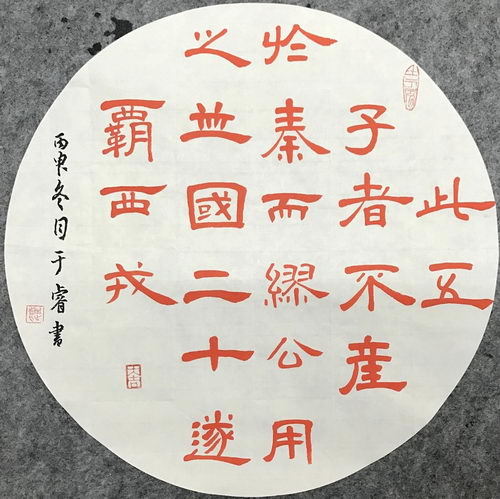 此五
子者不産
於秦而繆公用
之並國二十遂
覇西戎
丙申冬月于睿書
大吉